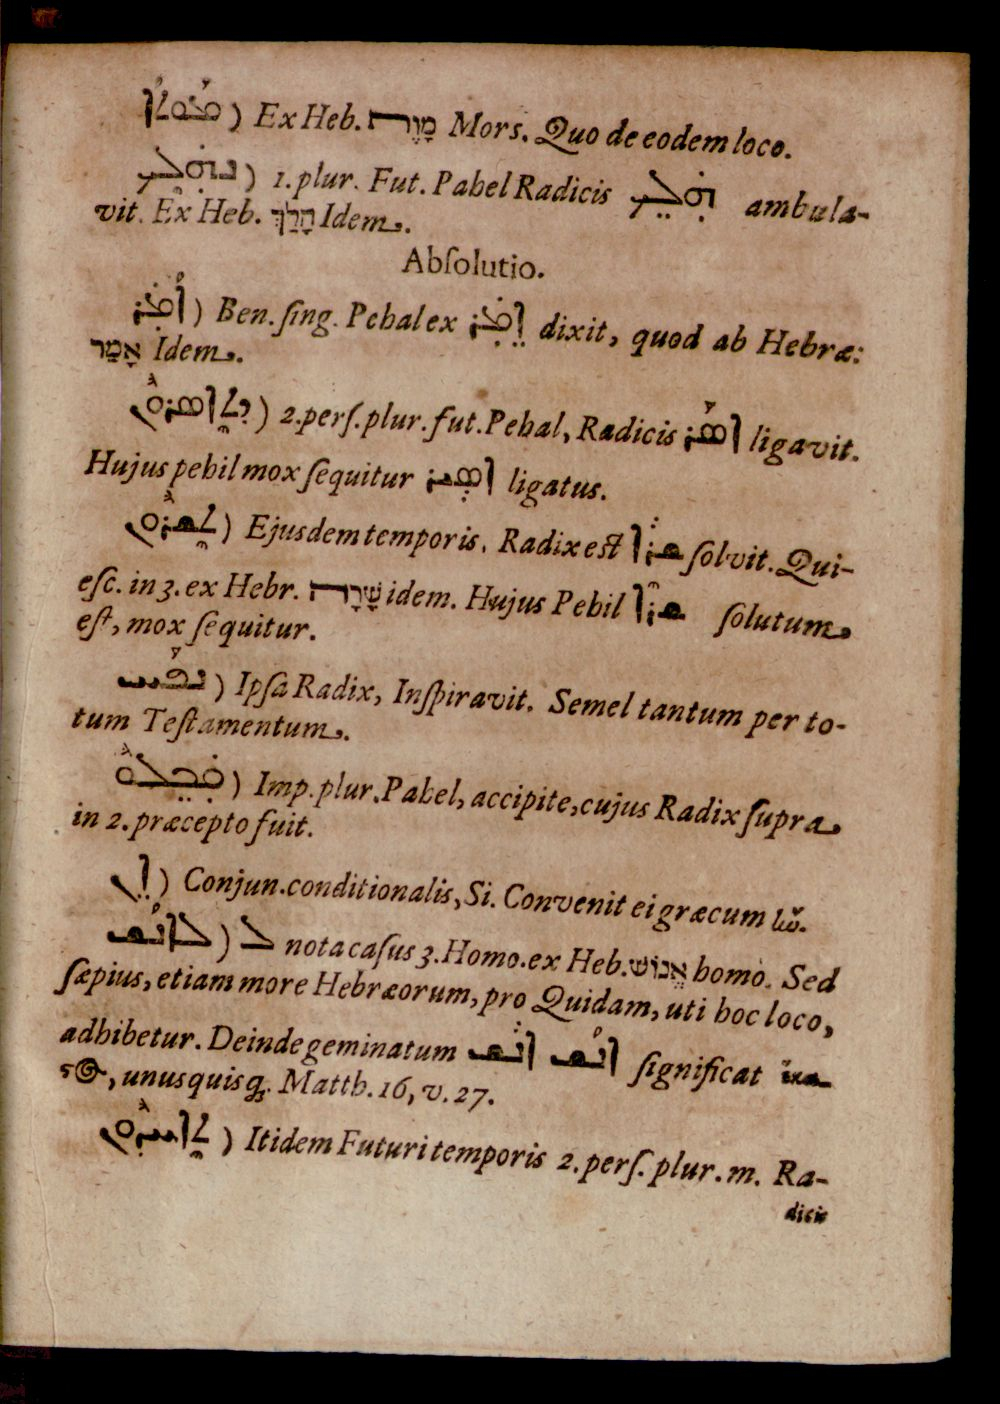 ܡܰܘܬܳܐ) Ex Heb. מָוֶת Mors. Quo de eodem loco.
ܢܗܰܠܶܟ) 1. plur. Fut. Pahel Radicis ܗܰܠܶܟ ambula-
vit. Ex Heb. הָלַךְ Idem.
Absolutio.
ܐܳܡܰܪ) Ben. sing. Pehal ex ܐܶܡܰܪ dixit, quod ab Hebræ:
אָמַר Idem.
ܬܶܐܣܪܽܘܢ) 2. pers. plur. fut. Pehal, Radicis ܐܣܰܪ ligavit.
Hujus pehil mox sequitur ܐܣܺܝܪ ligatus.
ܬܶܫܪܽܘܢ) Ejusdem temporis. Radix est ܫܪܳܐ solvit. Qui-
esc. in 3. ex Hebr. שָׁרָה idem. Hujus Pehil ܫܪܶܐ solutum
est, mox sequitur.
ܢܦܰܚ) Ipsa Radix, Inspiravit. Semel tantum per to-
tum Testamentum.
ܩܰܒܶܠܘ) Imp. plur. Pahel, accipite, cujus Radix supra
in 2. præcepto fuit.
ܐܶܢ) Conjun. conditionalis, Si. Convenit ei græcum
ܠܐܢܳܫ) ܠ nota casus 3. Homo. ex Heb. אֱנוֹשׁ homo. Sed
sæpius, etiam more Hebræorum, pro Quidam, uti hoc loco,
adhibetur. Deinde geminatum ܐܢܳܫ ܐܢܳܫ significat ἕκα-
στος, unusquisq. Matth. 16, v. 27.
ܬܶܐܚܕܽܘܢ) Itidem Futuri temporis 2. pers. plur. m. Ra-
dicis